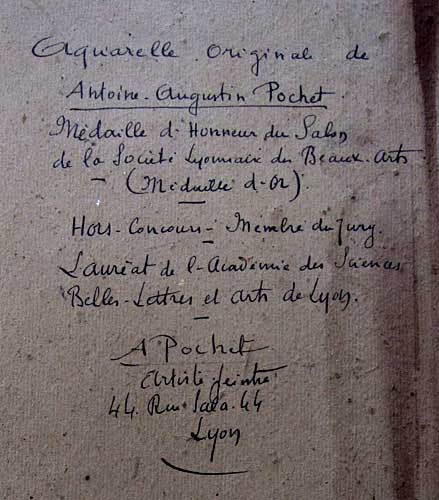 Aquarelle Originale de
Antoine-Augustin Pochet
Médaille d'Honneur du Salon
de la Société Lyonnaise des Beaux-Arts
(Médaille d'Or).
Hors-Concours - Membre du Jury.
Lauréat de l'Académie des Sciences
Belles-Lettres et Arts de Lyon.
A Pochet
Artiste peintre
44. Rue Sala. 44
Lyon